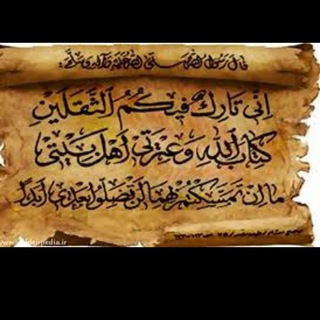 قال رسول الله صلی الله علیه وآله وسلم:
اِنّی تارِكٌ فیكُمُ الثَّقَلَینِ
كِتابَ اللهِ وَعِترَتی اَهلَ بَیتی
ما اِن تَمَسَّكتُم بِهِما لَن تَضِلّوا بَعدی اَبَدًا
pedia.ir